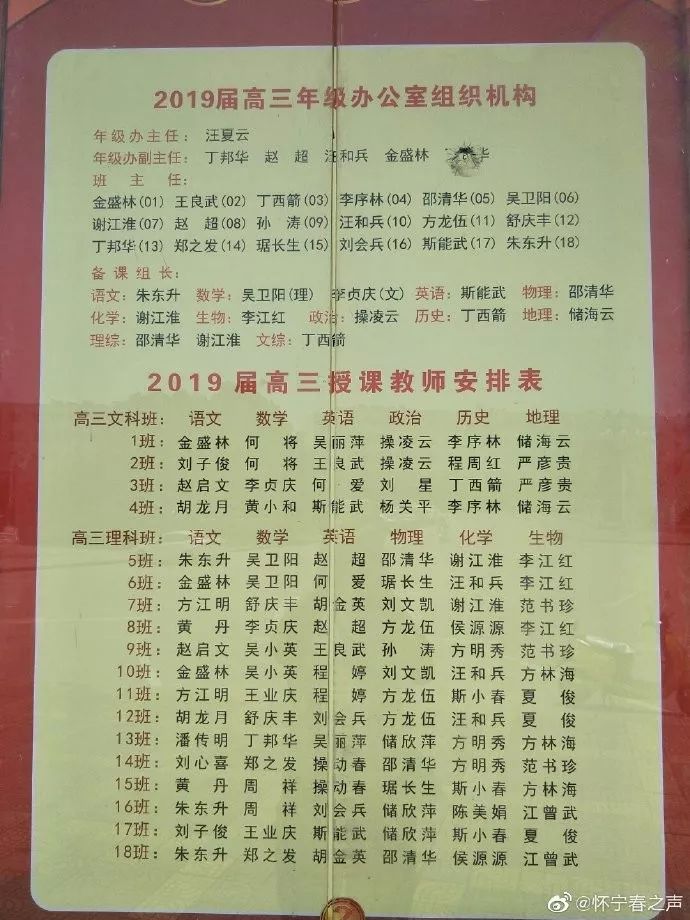 2019届高三年级办公室组织机构
年级办主任： 汪夏云
年级办副主任： 丁邦华 赵 超 汪和兵 金盛林 华
班 主 任：
金盛林(01) 王良武(02) 丁西箭(03) 李序林(04) 邵清华(05) 吴卫阳(06)
谢江淮(07) 赵 超(08) 孙 涛(09) 汪和兵(10) 方龙伍(11) 舒庆丰(12)
丁邦华(13) 郑之发(14) 琚长生(15) 刘会兵(16) 斯能武(17) 朱东升(18)
备 课 组 长：
语文：朱东升 数学：吴卫阳(理) 李贞庆(文) 英语：斯能武 物理：邵清华
化学：谢江淮 生物：李江红 政治：操凌云 历史：丁西箭 地理：储海云
理综：邵清华 谢江淮 文综：丁西箭
2019 届高三授课教师安排表
高三文科班： 语文 数学 英语 政治 历史 地理
1班： 金盛林 何 将 吴丽萍 操凌云 李序林 储海云
2班： 刘子俊 何 将 王良武 操凌云 程周红 严彦贵
3班： 赵启文 李贞庆 何 爱 刘 星 丁西箭 严彦贵
4班： 胡龙月 黄小和 斯能武 杨关平 李序林 储海云
高三理科班： 语文 数学 英语 物理 化学 生物
5班： 朱东升 吴卫阳 赵 超 邵清华 谢江淮 李江红
6班： 金盛林 吴卫阳 何 爱 琚长生 汪和兵 李江红
7班： 方江明 舒庆丰 胡金英 刘文凯 谢江淮 范书珍
8班： 黄 丹 李贞庆 赵 超 方龙伍 侯源源 李江红
9班： 赵启文 吴小英 王良武 孙 涛 方明秀 范书珍
10班： 金盛林 吴小英 程 婷 刘文凯 汪和兵 方林海
11班： 方江明 王业庆 程 婷 方龙伍 斯小春 夏 俊
12班： 胡龙月 舒庆丰 刘会兵 方龙伍 汪和兵 夏 俊
13班： 潘传明 丁邦华 吴丽萍 储欣萍 方明秀 方林海
14班： 刘心喜 郑之发 操动春 邵清华 方明秀 范书珍
15班： 黄 丹 周 祥 操动春 琚长生 斯小春 方林海
16班： 朱东升 周 祥 刘会兵 储欣萍 陈美娟 江曾武
17班： 刘子俊 王业庆 斯能武 储欣萍 斯小春 夏 俊
18班： 朱东升 郑之发 胡金英 邵清华 侯源源 江曾武
@怀宁春之声